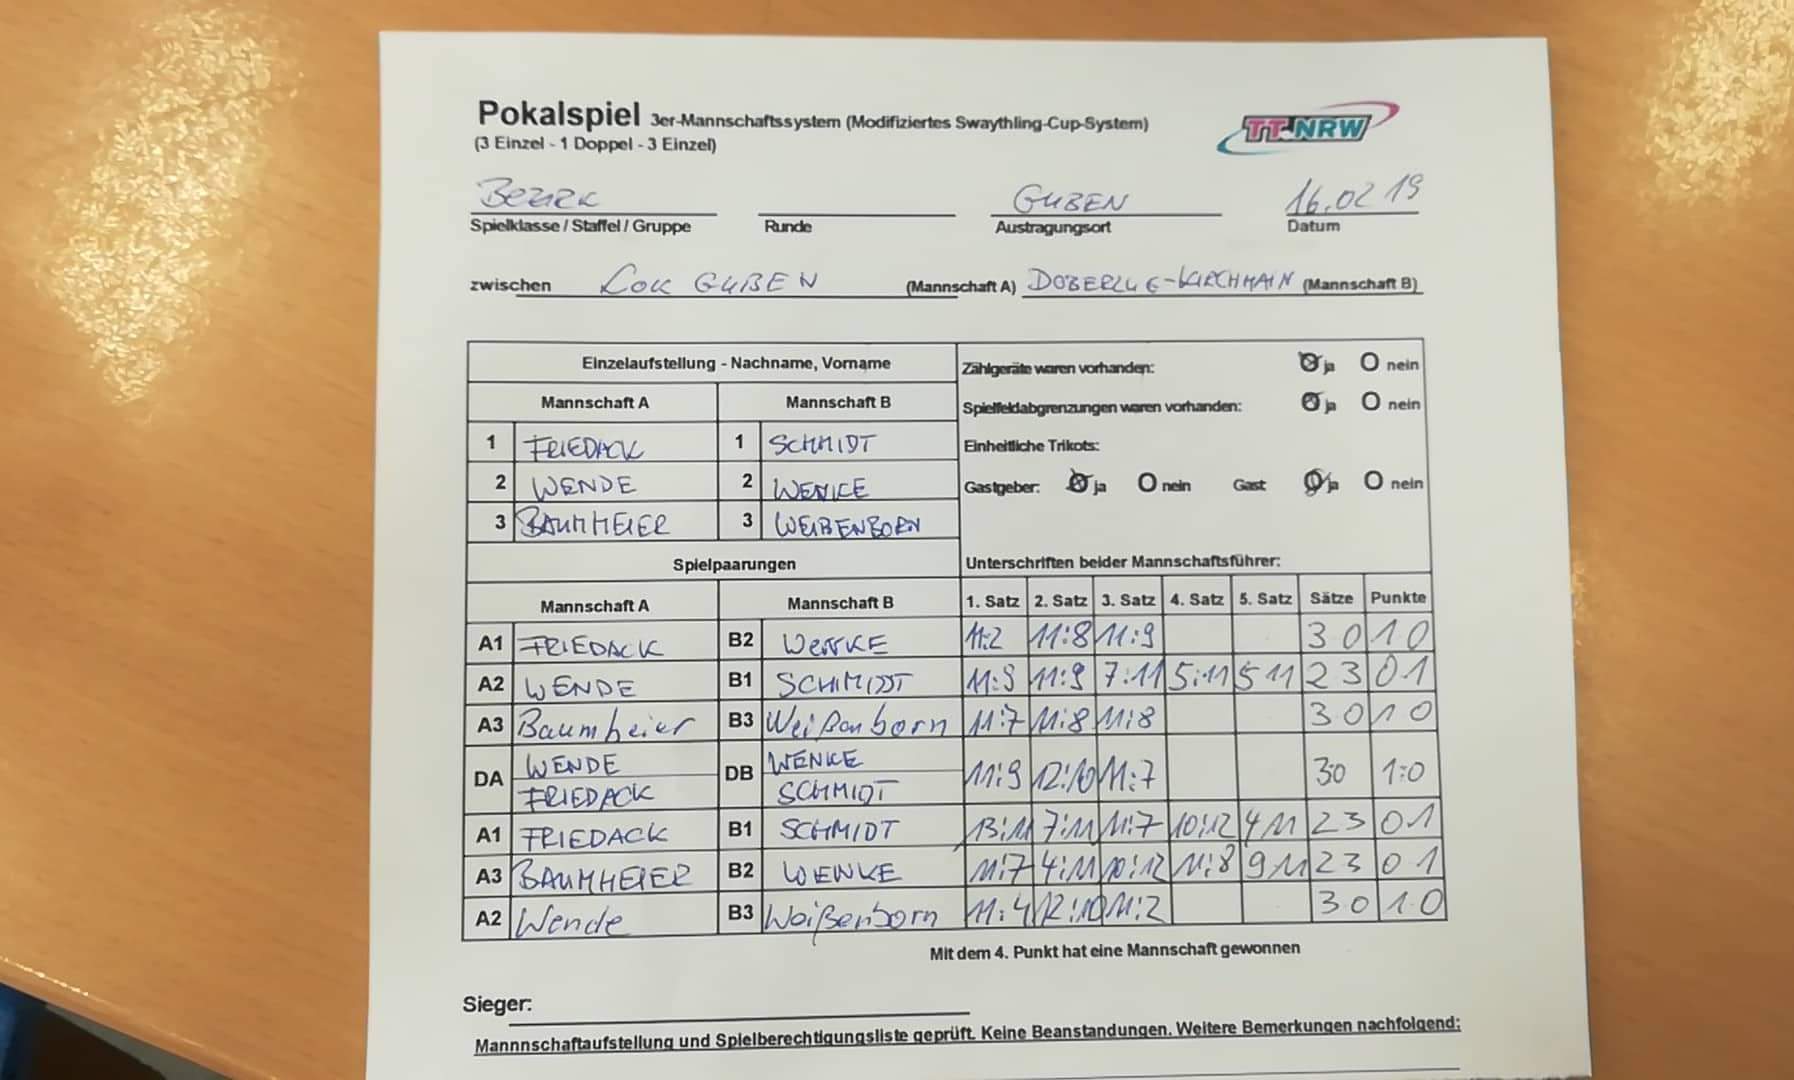 Pokalspiel 3er-Mannschaftssystem (Modifiziertes Swaythling-Cup-System)
(3 Einzel - 1 Doppel - 3 Einzel)
TT.NRW
BEZIRK GUBEN 16.02 19
Spielklasse / Staffel / Gruppe Runde Austragungsort Datum
zwischen LOK GUBEN (Mannschaft A) DOBERLUG-KIRCHHAIN (Mannschaft B)
Einzelaufstellung - Nachname, Vorname Zählgeräte waren vorhanden: ja nein
Mannschaft A Mannschaft B Spielfeldabgrenzungen waren vorhanden: ja nein
1 FRIEDACK 1 SCHMIDT Einheitliche Trikots:
2 WENDE 2 WENKE Gastgeber: ja nein Gast ja nein
3 BAUMHEIER 3 WEIßENBORN
Spielpaarungen Unterschriften beider Mannschaftsführer:
Mannschaft A Mannschaft B 1. Satz 2. Satz 3. Satz 4. Satz 5. Satz Sätze Punkte
A1 FRIEDACK B2 WENKE 11:2 11:8 11:9 3 0 1 0
A2 WENDE B1 SCHMIDT 11:9 11:9 7:11 5:11 5 11 2 3 0 1
A3 Baumheier B3 Weißenborn 11:7 11:8 11:8 3 0 1 0
DA WENDE DB WENKE 11:9 12:10 11:7 3:0 1:0
FRIEDACK SCHMIDT
A1 FRIEDACK B1 SCHMIDT 13:11 7:11 11:7 10:12 4 11 2 3 0 1
A3 BAUMHEIER B2 WENKE 11:7 4:11 10:12 11:8 9 11 2 3 0 1
A2 Wende B3 Weißenborn 11:4 12:10 11:2 3 0 1 0
Mit dem 4. Punkt hat eine Mannschaft gewonnen
Sieger:
Mannnschaftaufstellung und Spielberechtigungsliste geprüft. Keine Beanstandungen. Weitere Bemerkungen nachfolgend: